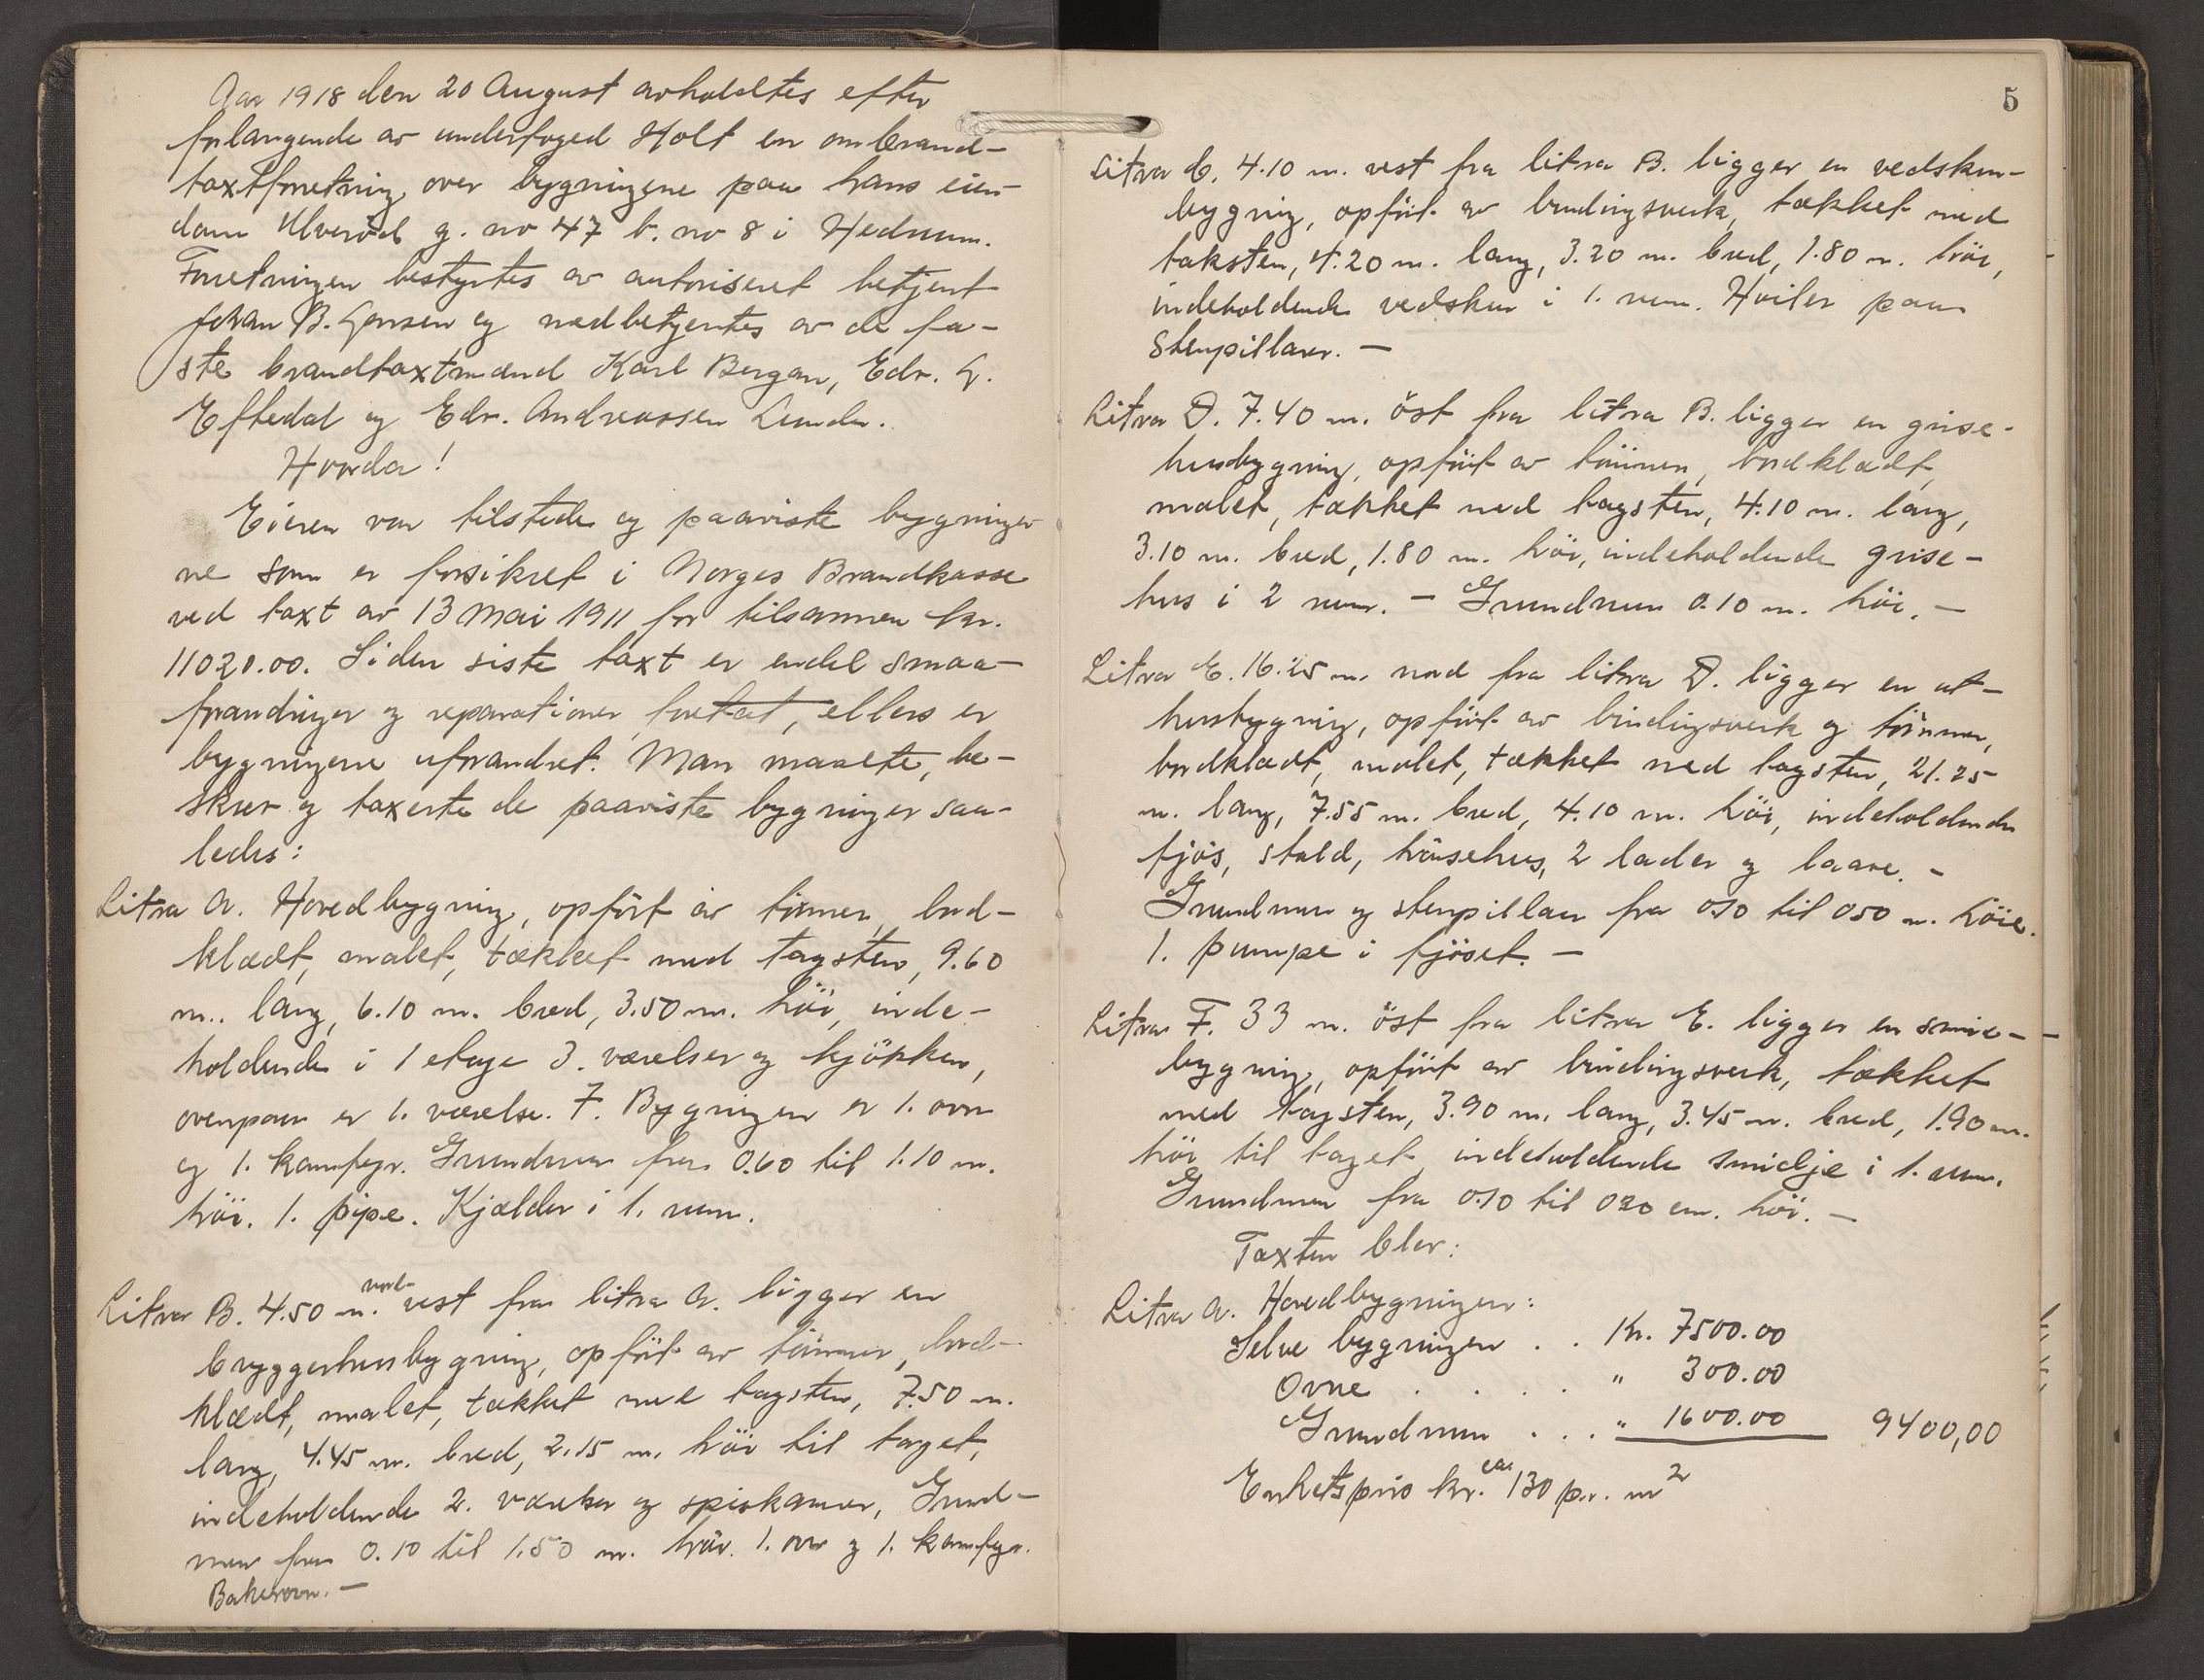 Aar 1918 den 20 August avholdtes efter
forlangende av underfoged Holt en ombrand-
taxtforretning over bygningene paa hans eien-
dom Ulveröd g. no 47 b. no 8 i Hedrum.
Forretningen bestyrtes av autoriseret betjent
Johan B. Jensen og medbetjentes av de fa-
ste brandtaxtmænd Karl Bergan, Edv. G.
Eftedal og Edv. Andreassen Lunde.
Hvorda!
Eieren var tilstede og paaviste bygninger
ne som er forsikret i Norges Brandkasse
ved taxt av 13 Mai 1911 for tilsammen kr.
11020.00. Siden siste taxt er endel smaa-
forandringer og reparationer foretat, ellers er
bygningene uforandret. Man maalte, be-
skrev og taxerte de paaviste bygninger saa-
ledes:
Litra A. Hovedbygning, opfört av tömmer, bord-
klædt, malet, tækket med tagsten, 9.60
m. lang, 6.10 m. bred, 3.50 m. höi, inde-
holdende i 1 etage 3. værelser og kjökken,
ovenpaa er 1. værelse. I. Bygningen er 1. ovn
og 1. komfyr. Grundmur fra 0.60 til 1.10 m.
höi. 1. pipe. Kjælder i 1. rum.
Litra B. 4.50 m. nord-vest fra litra A. ligger en
bryggerhusbygning, opfört av tömmer, bord-
klædt, malet, tækket med tagsten, 7.50 m.
lang, 4.45 m. bred, 2.15 m. höi til taget,
indeholdende 2. værelser og spiskamer, Grund-
mur fra 0.10 til 1.50 m. höi. 1. ovn og 1. komfyr.
Bakerovn. —
5
Litra C. 4.10 m. vest fra litra B. ligger en vedskur-
bygning, opfört av bindingsverk, tækket med
taksten, 4.20 m. lang, 3.20 m. bred, 1.80 m. höi,
indeholdende vedskur i 1. rum. Hviler paa
Stenpillarer. —
Litra D. 7.40 m. öst fra litra B. ligger en grise-
husbygning, opfört av tömmer, bordklædt,
malet, tækket med tagsten, 4.10 m. lang,
3.10 m. bred, 1.80 m. höi, indeholdende grise-
hus i 2 rum. — Grundmur 0.10 m. höi. —
Litra E. 16.25 m. nord fra litra D. ligger en ut-
husbygning, opfört av bindingsverk og tömmer,
bordklædt, malet, tækket med tagsten, 21.25
m. lang, 7.55 m. bred, 4.10 m. höi, indeholdende
fjös, stald, hönsehus, 2 lader og laave. -
Grundmur og stenpillarer fra 0.10 til 0.50 m. höie.
1. pumpe i fjöset. —
Litra F. 33 m. öst fra litra E. ligger en smie-
bygning, opfört av bindingsverk, tækket
med tagsten, 3.90 m. lang, 3.45 m. bred, 1.90 m.
höi til taget, indeholdende smidje i 1. rum.
Grundmur fra 0.10 til 0.20 cm. höi. —
Taxten blev:
Litra A. Hovedbygningen:
Selve bygningen . . Kr. 7500.00
Ovne . . . . " 300.00
Grundmur . . . " 1600.00 9400,00
Enhetspris kr. ca. 130 pr. m2